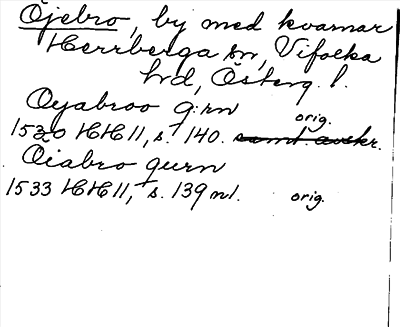 Öjebro, by med kvarnar
Herrberga sn, Vifolka
hrd, Österg. l.
Oyabroo q:rn
orig.
1530 HH II, s. 140. samt. avskr.
Öiabro quern
1533 HH II, s. 139 nl. orig.